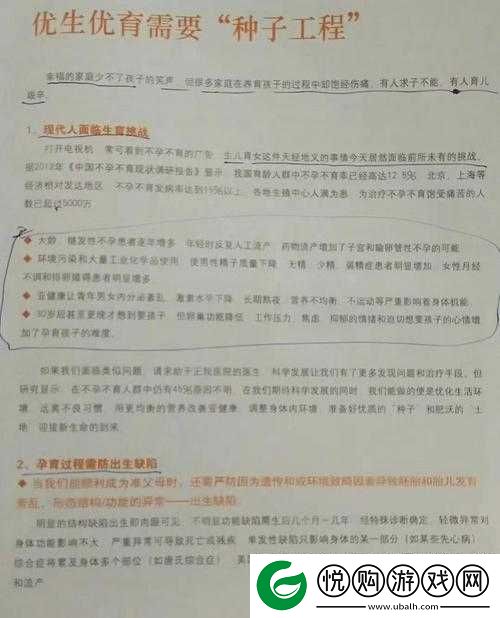 优生优育需要“种子工程”
幸福的家庭少不了孩子的笑声，但很多家庭在养育孩子的过程中却饱经伤痛，有人求子不能，有人育儿
艰辛。
1、现代人面临生育挑战
打开电视机，常可看到不孕不育的广告，生儿育女这件天经地义的事情今天居然面临前所未有的挑战。
据2012年《中国不孕不育现状调研报告》显示，我国育龄人群中不孕不育率已经高达12.5%，北京、上海等
经济相对发达地区，不孕不育发病率达到15%以上，各地生殖中心人满为患，为治疗不孕不育饱受痛苦的人
数已超过5000万
◆ 大龄、继发性不孕患者逐年增多，年轻时反复人工流产、药物流产增加了子宫和输卵管性不孕的可能
◆ 环境污染和大量工业化学品使用，使男性精子质量下降，无精、少精、弱精症患者明显增加，女性月经
不调和排卵障碍患者明显增多
◆ 亚健康让青年男女内分泌紊乱，激素水平下降，长期熬夜、营养不均衡、不运动等严重影响着身体机能
◆ 30岁后甚至更晚才想到要孩子，但卵巢功能降低，工作压力、焦虑、抑郁的情绪和迫切想要孩子的心情增
加了孕育孩子的难度。
如果我们面临类似问题，请求助于正规医院的医生，科学发展让我们有了更多发现问题和治疗手段。但
研究显示，在不孕不育人群中仍有45%原因不明，在我们期待科学发展的同时，我们能做的便是优化生活环
境，远离不良习惯，用更均衡的营养改善亚健康，调整身体内环境，准备好优质的“种子”和肥沃的“土
地”，迎接新生命的到来。
2、孕育过程需防出生缺陷
◆ 当我们能顺利成为准父母时，还要严防因为遗传和或环境致畸因素导致胚胎和胎儿发育
紊乱，形态结构/功能的异常——出生缺陷。
明显的结构缺陷出生即肉眼可见，不明显功能缺陷需生后几个月一几年，经特殊诊断确定，轻微异常对
身体功能影响不大，严重异常可导致死亡或残疾，单发性缺陷只影响身体的某一部分（如某些先心病）
综合症将累及身体多个部位（如唐氏综合症）
和流产
悦购游戏网
www.ubalh.com